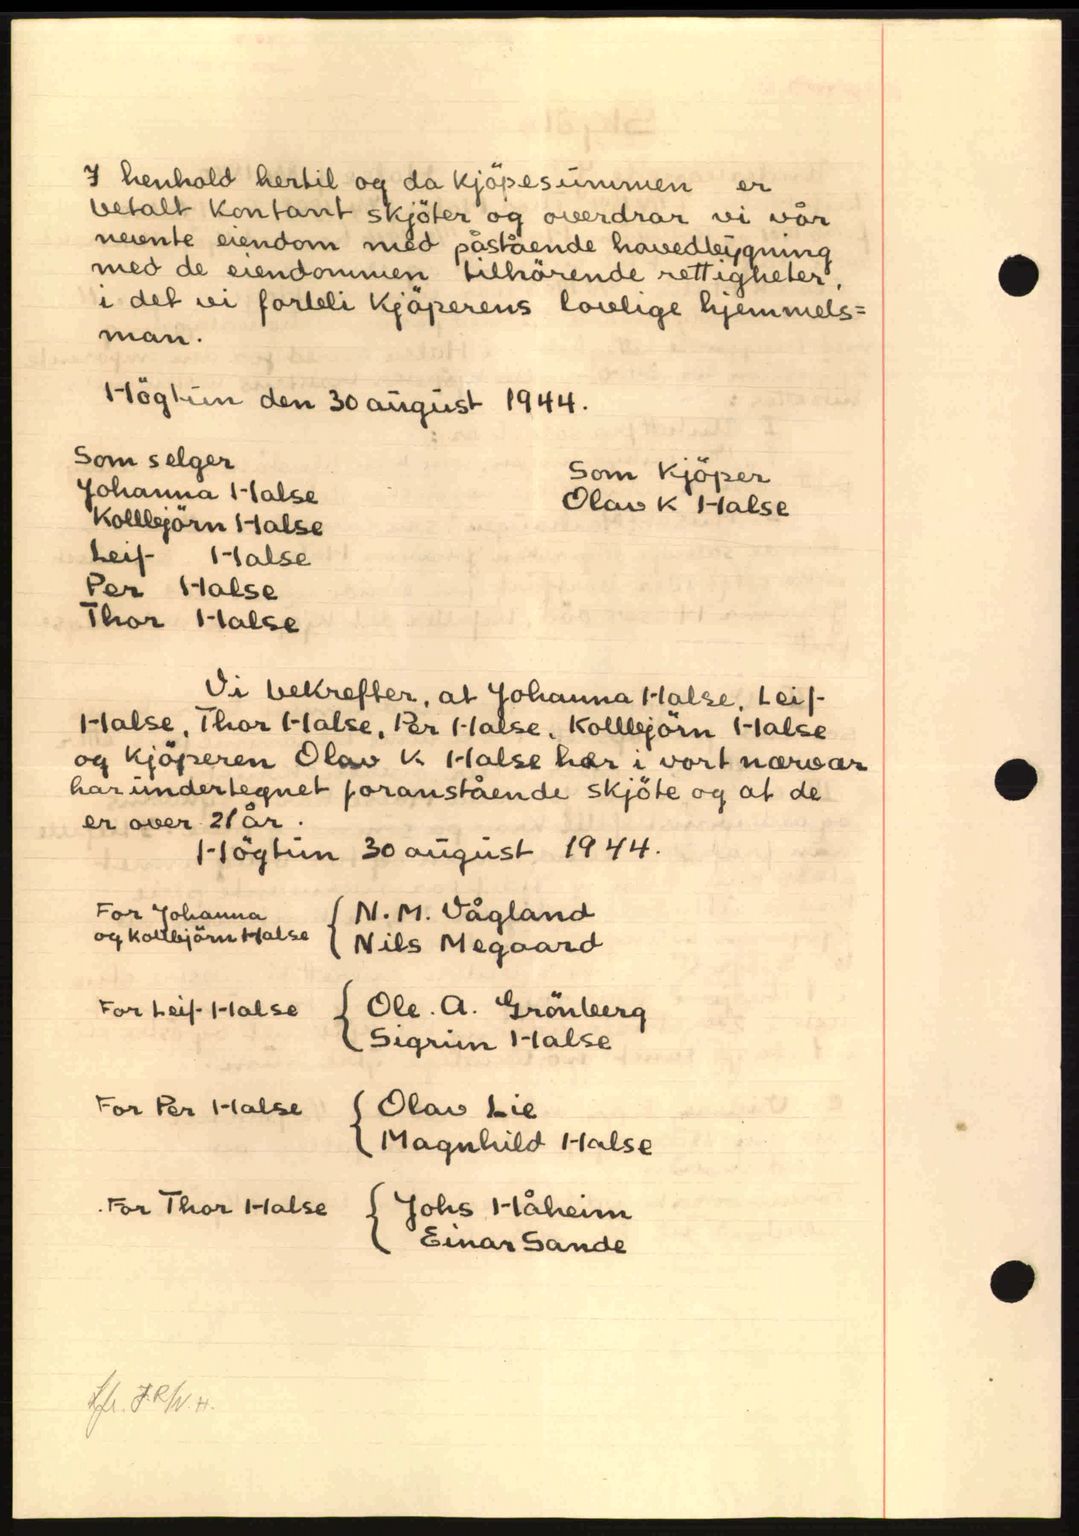 I henhold hertil og da kjöpesummen er
betalt kontant skjöter og overdrar vi vår
nevnte eiendom med påstående hovedbygning
med de eiendommen tilhörende rettigheter,
i det vi forbli kjöperens lovlige hjemmels=
man.
Högtun den 30 august 1944.
Som selger
Johanna Halse
Kollbjörn Halse
Leif Halse
Per Halse
Thor Halse
Som Kjöper
Olav K Halse
Vi bekrefter, at Johanna Halse, Leif
Halse, Thor Halse, Per Halse, Kollbjörn Halse
og kjöperen Olav K Halse her i vort nærvær
har undertegnet foranstående skjöte og at de
er over 21 år.
Högtun 30 august 1944.
For Johanna
og Kollbjörn Halse
N. M. Vågland
Nils Megaard
For Leif Halse
Ole. A. Grönberg
Sigrun Halse
For Per Halse
Olav Lie
Magnhild Halse
For Thor Halse
Johs Håheim
Einar Sande